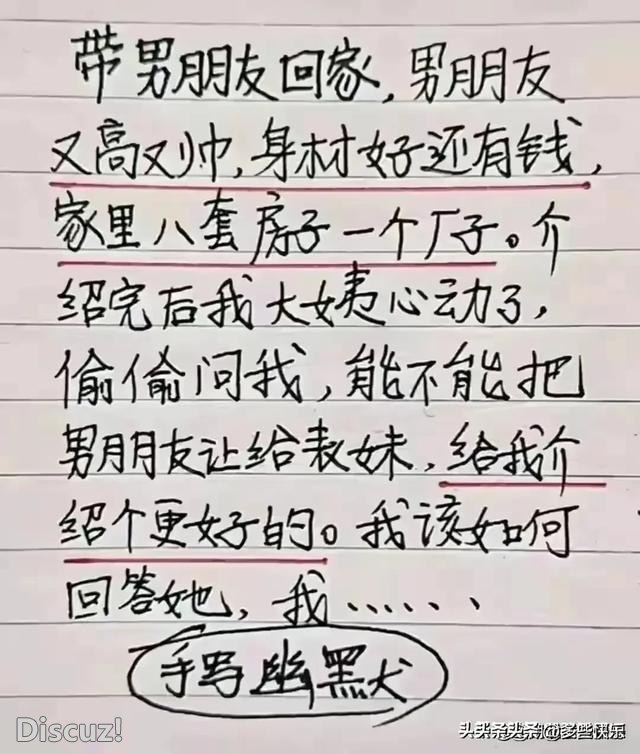 带男朋友回家,男朋友
又高又帅,身材好还有钱,
家里八套房子一个厂子。介
绍完后我大姨心动了,
偷偷问我,能不能把
男朋友让给表妹,给我介
绍个更好的。我该如何
回答她,我......
手写幽默
Discuz!